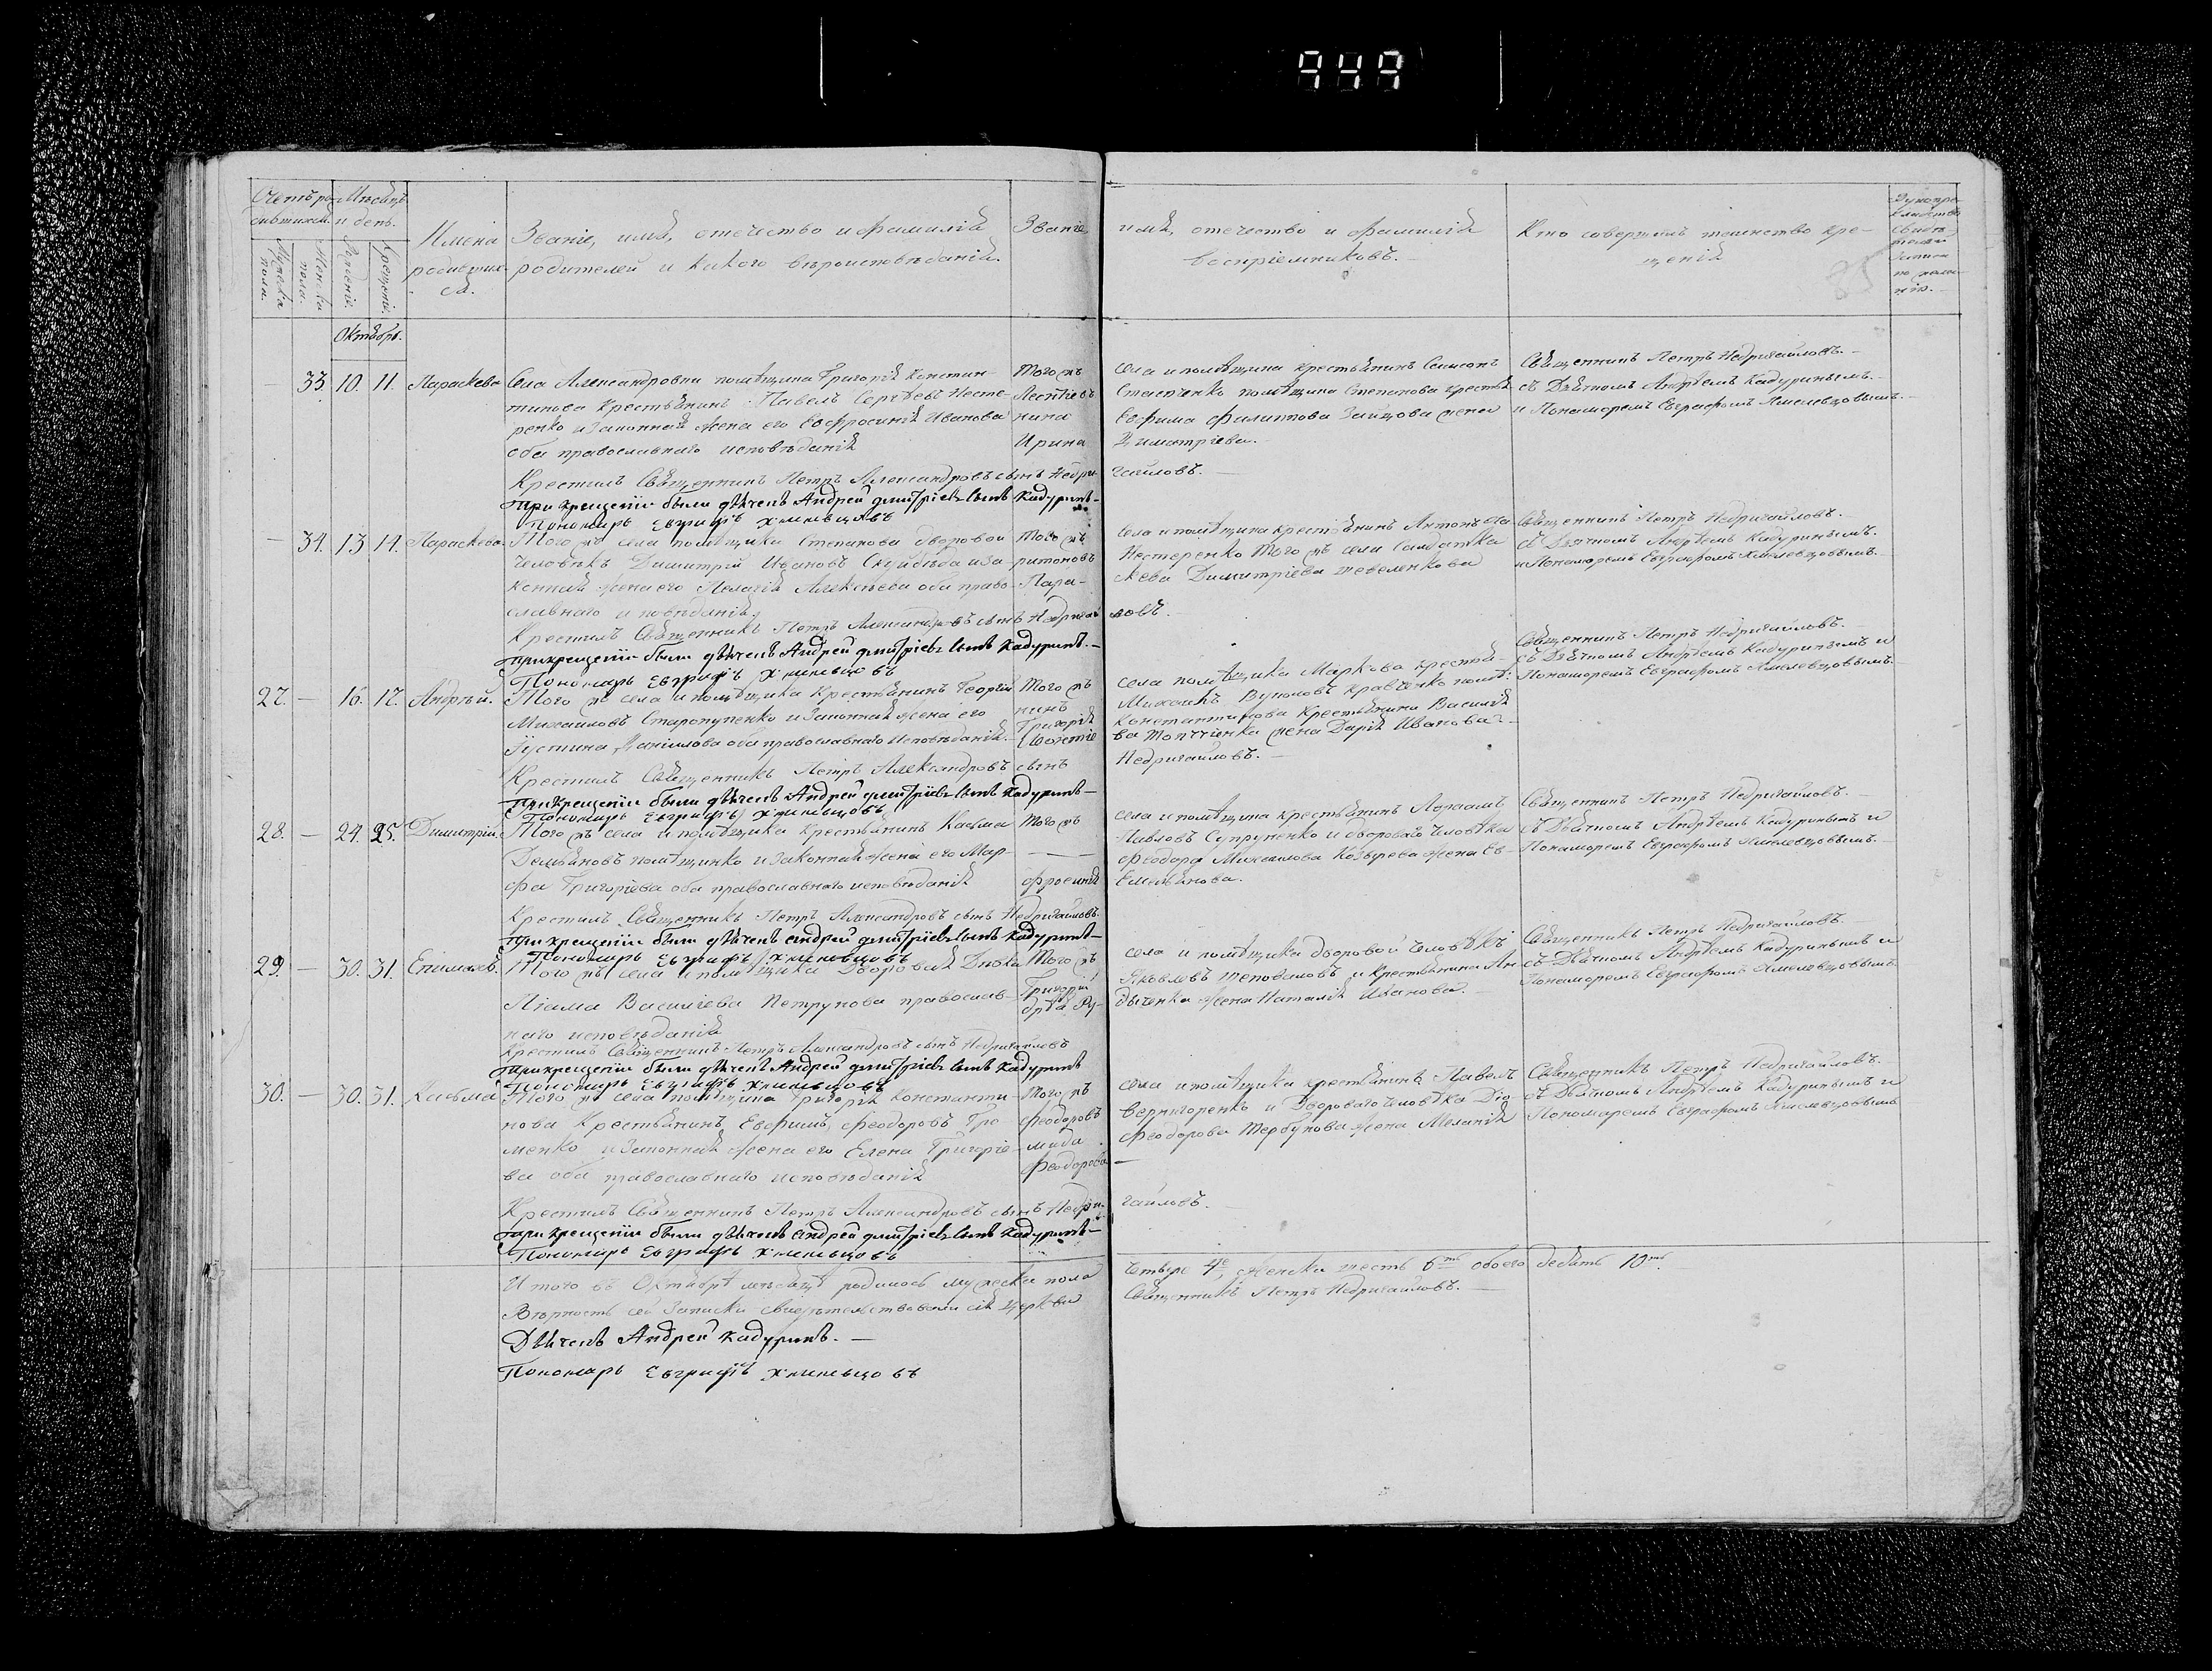 949
85
Счетъ ро- Мѣсяцъ
дившихся. и день.
Мужеска пола.
Женска пола.
Рожденія.
Крещенія.
Имена
родивших-
ся.
Званіе, имя, отечество и фамилія
родителей и какого вѣроисповѣданія.
Званіе, имя, отечество и фамилія
воспріемниковъ.
Кто совершалъ таинство кре-
щенія
Октябрь.
— 33. 10. 11. Параскева
Села Александровки помѣщика Григорія Констан-
тинова крестьянинъ Павелъ Сергѣевъ Несте-
ренко и законная жена его Евфросинія Иванова
оба православнаго исповѣданія
Того жъ села и помѣщика крестьянинъ Самсонъ
Леонтіевъ помѣщика Степанова крестья-
нина Евфима Филиппова Заицова жена
Ирина Димитріева.
Священникъ Петръ Недригайловъ.
съ Дьячкомъ Андреемъ Кадуринымъ.
и Пономаремъ Евграфомъ Хмелевцовымъ.
Крестилъ Священникъ Петръ Александровъ сынъ Недри-гайловъ.
При крещеніи были дьячекъ Андрей Дмитріевъ сынъ Кадуринъ
Пономарь Евграфъ Хмельцовъ
— 34. 13. 14. Параскева.
Того жъ села помѣщика Степанова дворовой
человѣкъ Димитрій Ивановъ и за-
конная жена его Пелагія Алексѣева оба право-
славнаго исповѣданія.
Того жъ села и помѣщика крестьянинъ Антонъ Ха-
ритоновъ Нестеренко того жъ села Солдатка
Пара-скева Димитріева
Священникъ Петръ Недригайловъ.
съ Дьячкомъ Андреемъ Кадуринымъ.
и Пономаремъ Евграфомъ Хмелевцовымъ.
Крестилъ Священникъ Петръ Александровъ сынъ Недригай-ловъ.
При крещеніи были дьячекъ Андрей Дмитріевъ сынъ Кадуринъ.
Пономарь Евграфъ Хмельцовъ
27. — 16. 17. Андрѣй.
Того жъ села и помѣщика крестьянинъ Георгій
Михаиловъ Старопупенко и законная жена его
Іустина Даніилова оба православнаго исповѣданія.
Того жъ села помѣщика Маркова крестья-
нинъ Михаилъ Вуколовъ Кравченко помѣ:
Григорія Константинова крестьянина Василія
жена Дарія Иванова.
Священникъ Петръ Недригайловъ.
съ Дьячкомъ Андреемъ Кадуринымъ и
Пономаремъ Евграфомъ Хмелевцовымъ.
Крестилъ Священникъ Петръ Александровъ сынъ Недригайловъ.
При крещеніи были дьячекъ Андрей Дмитріевъ сынъ Кадуринъ
Пономарь Евграфъ Хмельцовъ
28. — 24. 25. Димитрій.
Того жъ села и помѣщика крестьянинъ Касьма
Демьяновъ и законная жена его Мар-
фа Григоріева оба православнаго исповѣданія
Того жъ села и помѣщика крестьянинъ
Павловъ Супруненко и двороваго человѣка
Феодора Михаилова Козырева жена Ев-
фросинія Емельянова.
Священникъ Петръ Недригайловъ.
съ Дьячкомъ Андреемъ Кадуринымъ и
Пономаремъ Евграфомъ Хмелевцовымъ.
Крестилъ Священникъ Петръ Александровъ сынъ Недригайловъ.
При крещеніи были дьячекъ Андрей Дмитріевъ сынъ Кадуринъ
Пономарь Евграфъ Хмельцовъ
29. — 30. 31. Епимахъ.
Того жъ села и помѣщика Дворовая Дѣвка
Васильева Петрунова православ-
наго исповѣданія
Того жъ села и помѣщика дворовой человѣкъ
Григорій Яковлевъ и крестьянина Ан-
жена Наталія Иванова.
Священникъ Петръ Недригайловъ.
съ Дьячкомъ Андреемъ Кадуринымъ и
Пономаремъ Евграфомъ Хмелевцовымъ.
Крестилъ Священникъ Петръ Александровъ сынъ Недригайловъ
При крещеніи были дьячекъ Андрей Дмитріевъ сынъ Кадуринъ
Пономарь Евграфъ Хмельцовъ
30. — 30. 31. Касьма
Того жъ села помѣщика Григорія Константи-
нова Крестьянинъ Евфимъ Феодоровъ Гро
менко и законная жена его Елена Григоріе-
ва оба православнаго исповѣданія
Того жъ села и помѣщика крестьянинъ Павелъ
Феодоровъ Вернигоренко и Двороваго человѣка Дio-
мида Феодорова Тербунова жена Меланія
Феодорова —
Священникъ Петръ Недригайловъ.
съ Дьячкомъ Андреемъ Кадуринымъ и
Пономаремъ Евграфомъ Хмелевцовымъ
Крестилъ Священникъ Петръ Александровъ сынъ Недри-гайловъ.
При крещеніи были дьячекъ Андрей Дмитріевъ сынъ Кадуринъ
Пономарь Евграфъ Хмельцовъ
Итого въ Октябрѣ мѣсяцѣ родилось мужеска пола четыре 4е, женска шесть 6ть обоего десять 10ть.
Вѣрность сей записки свидѣтельствовали сія церкви Священникъ Петръ Недригайловъ.
Дьячекъ Андрей Кадуринъ. —
Пономарь Евграфъ Хмельцовъ